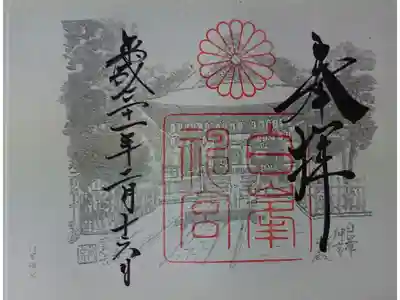 奉拝
白峯
神宮
白峯
神宮
平成
十一年二月十六日